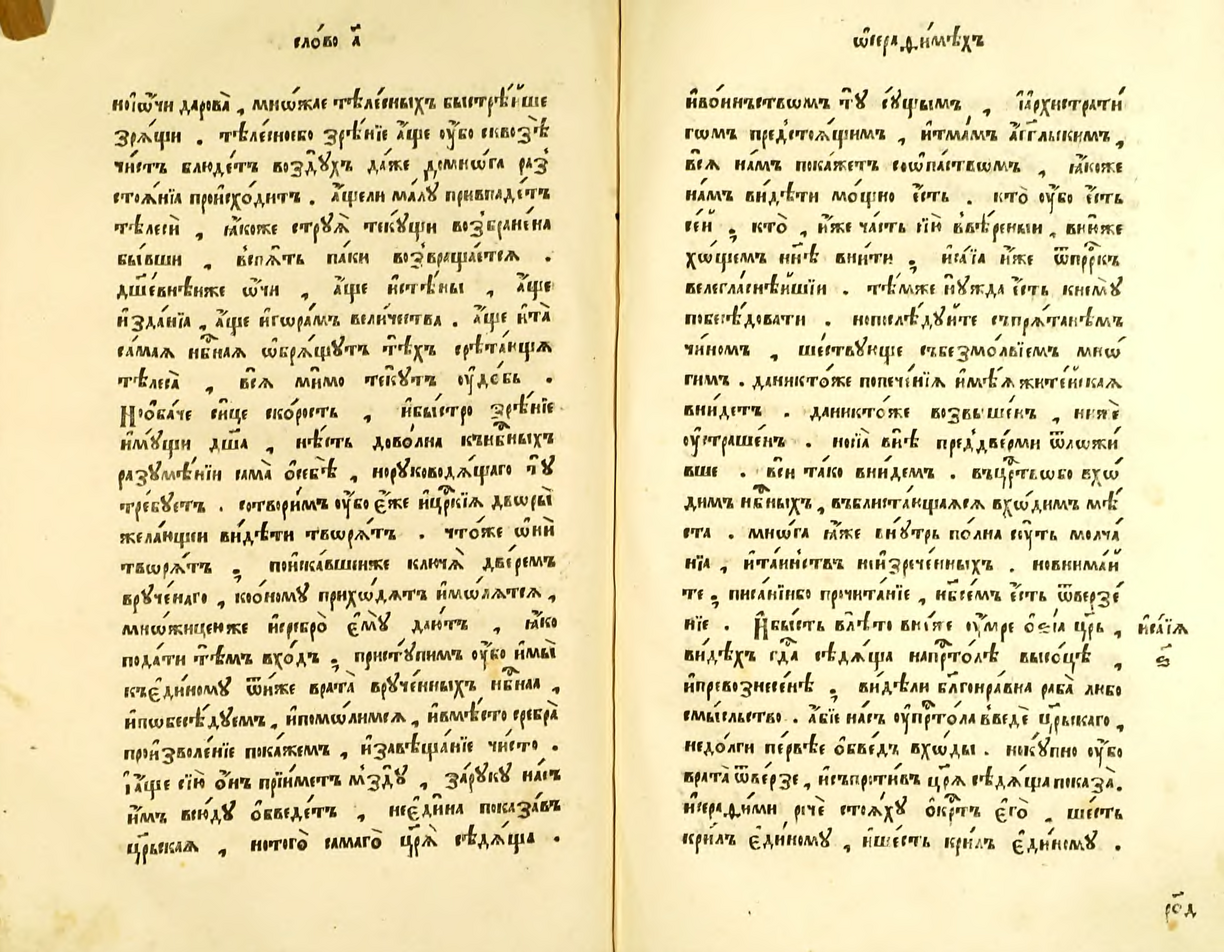 сло́во а҃
но́ѡ҆чи дарова̀ , мно́жае тѣле́сныхъ быстрѣ́йше
зрѧ́щи . тѣле́сноебо зрѣ́нїе а҆́ще ѹ҆́бо сквозѣ̀
чи́стъ блюде́тъ во́здꙋхъ да́же домно́га раз
стоѧ́нїа происхо́дитъ . а҆́щели ма́лꙋ привпаде́тъ
тѣлеси̂ , ꙗ҆́коже стрꙋѧ̀ текꙋ́щи возбране́на
бы́вши , вспѧ́ть па́ки возвраща́етсѧ .
дш҃е́внѣиже ѡ҆́чи , а҆́ще и҆стѣ́ны , а҆́ще
и҆зда́нїа , а҆́ще и҆гѡра́мъ вели́чества . а҆́ще и҆та̀
са́маѧ нб҃наѧ ѡ҆брѧ́щꙋтъ тѣ́хъ срѣта́ющѧ
тѣлеса̀ , всѧ̂ ми́мо текꙋ́тъ ѹ҆до́бь .
Но́обаче си́це ско́рость , и҆бы́стро зрѣ́нїе
и҆мꙋ́щи дш҃а , нѣ́сть дово́лна кънб҃ныхъ
разꙋмѣ́нїи сама̀ ѻ҆себѣ̀ , норꙋководѧ́щаго тꙋ̀
тре́бꙋетъ . сотвори́мъ ѹ҆́бо є҆́же и҆цр҃кїѧ дворы̀
жела́ющеи ви́дѣти творѧ́тъ . что́же ѡ҆ни̂
творѧ́тъ ; пои҆ска́вшеиже ключа̀ две́ремъ
врꙋче́наго , ко́ономꙋ прихо́дѧтъ и҆мо́лѧтсѧ ,
мно́жицеиже и҆серебро̀ є҆мꙋ̀ даю́тъ , ꙗ҆́ко
пода́ти тѣ́мъ вхо́дъ ; пристꙋ́пимъ ѹ҆́бо и҆мы̀
къє҆ди́номꙋ ѿни́же врата̀ врꙋче́нныхъ нб҃наа ,
и҆побесѣ́дꙋемъ , и҆помо́лимсѧ , и҆вмѣ́сто сребра̀
произволе́нїе пока́жемъ , и҆завѣща́нїе чи́сто .
І҆а҆́ще сїю̀ ѻ҆́нъ прїи́метъ мздꙋ̀ , за́рꙋкꙋ на́съ
и҆́мъ всю́дꙋ ѻ҆бведе́тъ , неє҆ди́на показа́въ
цр҃ьскаѧ , нотого̀ самаго̀ цр҃ѧ̀ сѣдѧ́ща .
ѡ҆серафи́мѣхъ
и҆во́инъствомъ тꙋ̀ сꙋ́щымъ , і҆а҆рхистрати
гомъ предстоѧ́щимъ , и҆тма́мъ а҆́гг҃льскимъ ,
всѧ̂ на́мъ пока́жетъ со́опаствомъ , ꙗ҆́коже
на́мъ ви́дѣти мо́щно є҆́сть . кто̀ ѹ҆́бо є҆́сть
се́й ; кто̀ , и҆́же ча́сть сїю̀ ввѣ́реныи , вни́же
хо́щемъ нн҃ѣ вни́ти ; и҆са́їа и҆́же ѿпр҃ркъ
велегла́снѣйшїи . тѣ́мже нꙋ́жда є҆́сть кнемꙋ̀
побесѣ́довати . нопослѣ́дꙋйте съпрѧ́танѣмъ
чи́номъ , ше́ствꙋюще събезмо́лвїемъ мно́
гимъ . даникто́же попече́нїѧ и҆мѣ́ѧ жите́йскаѧ
вни́детъ . даникто́же возвы́шенъ , нижѐ
ѹ҆страше́нъ . носїа̀ внѣ̀ преддверми ѿложи́
вше . вси̂ та́ко вни́демъ . въцр҃твобо вхо́
димъ нб҃ныхъ , въблиста́ющааѧсѧ вхо́димъ мѣ́
ста . мно́га ꙗ҆́же внꙋ́трь по́лна сꙋ́ть молча́
нїа , и҆та́инствъ неи҆зрече́нныхъ . новнима́й
те ; писа́нїибо прочита́нїе , нб҃семъ є҆́сть ѿверзе́
нїе . И҆бы́сть влѣ́то вни́же ѹ҆́мре ѻ҆зі́а цр҃ь ,
и҆са́їѧ
ѕ҃
ви́дѣхъ гд҃а сѣдѧ́ща напр҃то́лѣ высо́цѣ ,
и҆превознесе́нѣ ; ви́дѣли бл҃гонра́вна раба̀ либо
смы́сльство . а҆́бїе на́съ ѹ҆пр҃то́ла введѐ цр҃ьскаго ,
недо́лги пе́рвѣе ѻ҆бве́дъ вхо́ды . нокꙋ́пно ѹ҆́бо
врата̀ ѿве́рзе , и҆съпроти́въ цр҃ѧ̀ сѣдѧ́ща показа̀.
и҆серафи́ми речѐ стоѧ́хꙋ ѻ҆́кр҃тъ є҆гѡ̀ , ше́сть
кри́лъ є҆ди́номꙋ , и҆ше́сть кри́лъ є҆ди́номꙋ .
рѻ҃д